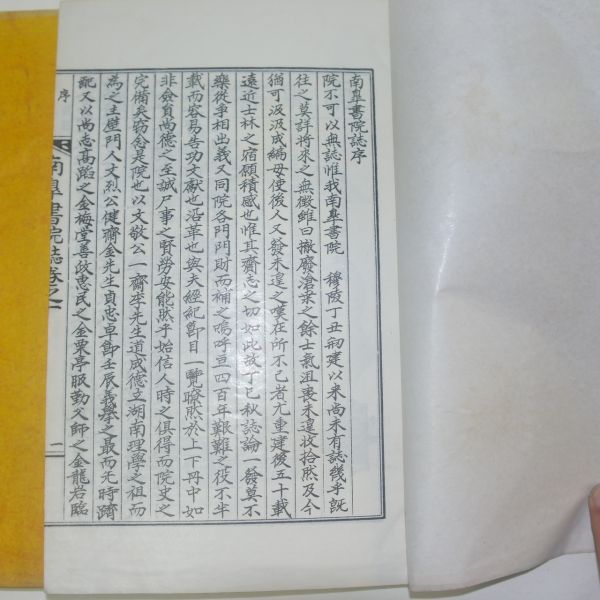 南皐書院誌序
院不可以無誌惟我南皐書院 穆陵丁丑刱建以來尚未有誌幾乎旣
往之莫詳將來之無徵雖曰撤廢滄桑之餘士氣沮喪未遑收拾然及今
猶可汲汲成編毋使後人又發未遑之嘆在所不已者尤重建後五十載
遠近士林之宿願積感也惟其齋志之切如此故丁巳秋誌論一發莫不
樂從爭相出義又同院各門門財而補之嗚呼亘四百年艱難之役不半
載而容易告功文獻也沿革也與夫經紀節目一覽瞭然於上下冊中如
非僉員尚德之至誠尸事之賢勞安能然乎始信人時之俱得而院史之
完備矣窃念是院也以文敬公一齋李先生道成德立湖南理學之祖而
為之主壁門人文烈公健齋金先生貞忠卓節壬辰義擧之最而先時躋
配又以尚志高蹈之金梅堂善政惠民之金栗亭服勤久師之金龍岩臨
序
南皐書院誌卷之一
一